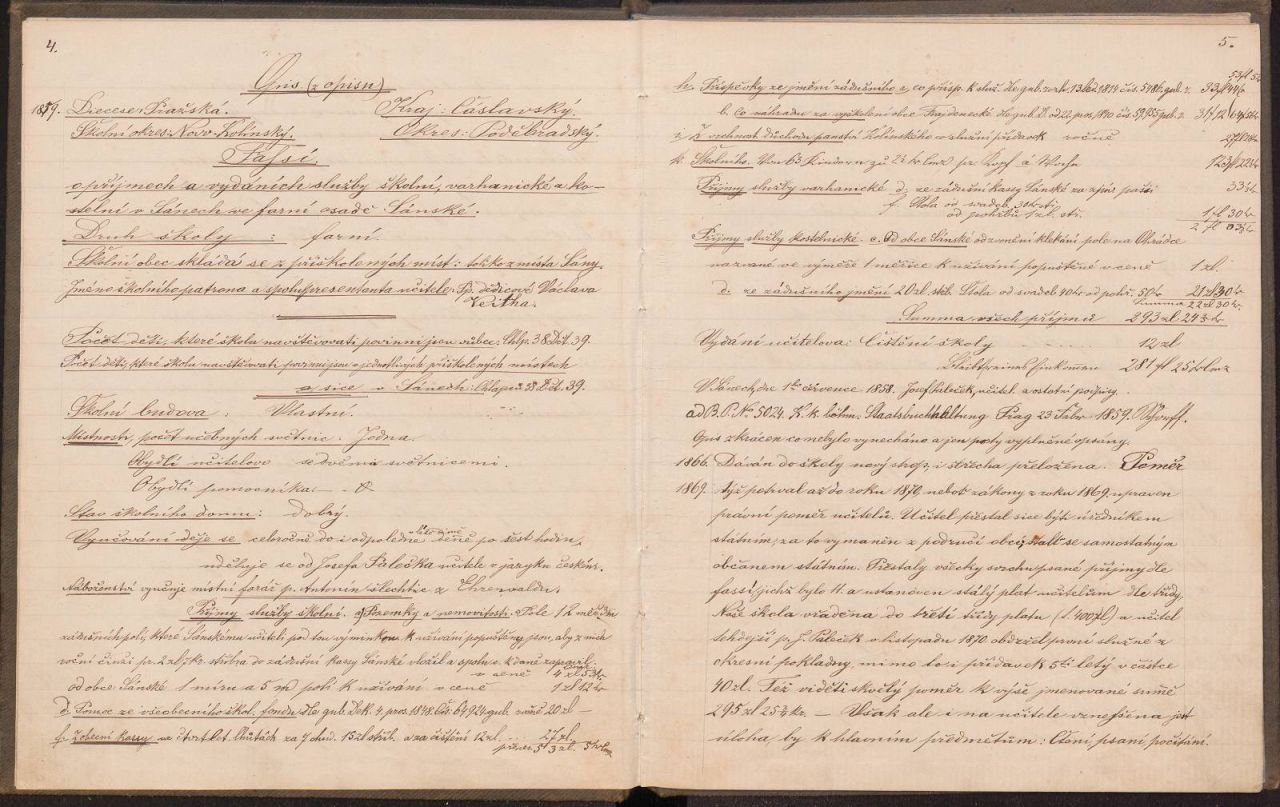 4.
Opis (z opisu)
1859. Diecese: Pražská. Kraj: Čáslavský.
Školní okres: Novo-Kolínský. Okres: Poděbradský.
Fassí.
o příjmech a vydáních služby školní, varhanické a ko-
stelní v Sánech ve farní osadě Sánské.
Druh školy: farní.
Školní obec skládá se z přiškolených míst: toliko z místa Sány.
Jméno školního patrona a spolupresentanta učitele: P. dědicové Václava
Veitha.
Počet dětí, které školu navštěvovati povinni jsou vůbec: Chlp. 38 Dět. 39.
Počet dětí, které školu navštěvovati povinni jsou v jednotlivých přiškolených místech
a sice v Sánech: Chlapců 38 Dět. 39.
Školní budova: Vlastní.
Místnosti, počet učebných světnic. Jedna.
Obydlí učitelovo se dvěma světnicemi.
Obydlí pomocníka: — 0
Stav školního domu: dobrý.
Vyučování děje se celoročně do i odpoledne v létě v zimě denně po šest hodin,
uděluje se od Josefa Palečka učitele v jazyku českém.
Náboženství vyučuje místní farář p. Antonín šlechtic z Ehrenwaldu.
Příjmy služby školní. a) Pozemky a nemovitosti. Pole 12 měř.
zádušních polí, které Sánskému učiteli pod tou výminkou k užívání popuštěny jsou, aby z nich
roční činži pr. 2 zl. 7 kr. stříbra do zádušní kassy Sánské vložil a spolu c. k. daně zapravil.
v ceně 4 zl. 53 kr.
od obce Sánské 1 míru a 5 m polí k užívání v ceně 1 zl 12 kr
d. Pomoc ze všeobecního škol. fondu dle gub. Dek. 4. pros. 1848. Čís. 64924 gub. ročně 20 zl —
g. Z obecní kassy ve čtvrtlet. lhůtách za 7 chud. 15 zl stříb. a za čištění 12 zl. ... 27 zl.
přenes. 53 zl. 5 kr
5.
53 fl 5
h. Příspěvky ze jmění zádušního a, co přísp. k služ. dle gub. nař. 13 1814 čís. 5486 gub. r. 33
b. Co náhradu za vyškolení obce dle gub. D. od 22. pros. 1840 čís. 59,955 gub. r. 31 fl 12
i. Z vrchnost. důchodu panství Kolínského v slování přídavek ročně 27 fl
k. Školního. Von 63 Kindern zu 2 kr Cmz pr Kopf à Woche 123 fl 22 kr
Příjmy služby varhanické d. ze zádušní kassy Sánské za zpív. pašií 33 kr.
f. Štola od svateb 30 kr. stř.
od pohřbů 1 zl. stř. 1 fl 30 kr
2 fl 03 kr.
Příjmy služby kostelnické. c. Od obce Sánské od zvonění klekání pole na Ohrádce
nazvané ve výměře 1 měřice k užívání popuštěné v ceně 1 zl.
d. ze zádušního jmění 20 zl. stříb. Štola od svadeb 40 kr od pohř. 50 kr 21 zl 30 kr
Summa 22 zl 30 kr.
Summa všech příjmů 293 zl 24 kr
Vydání učitelova: Čištění školy ..... 12 zl
Bleibt reines Einkommen 281 fl 25 kr Cmz
V Sánech, dne 1. července 1858. Josef Paleček, učitel. a ostatní podpisy.
ad B. P. No 5024. K. k. böhm. Staatsbuchhaltung Prag 23 Febr 1859. Schorff.
Opis zkrácen co nebylo vynecháno a jen posty vyplněné opsány.
1866. Dáván do školy nový strop, i střecha přeložena. Poměr
1869. týž potrval až do roku 1870, neboť zákony z roku 1869. upraven
právní poměr učitelů. Učitel přestal sice býti úředníkem
státním, za to vymaněn z područí obcí, stal se samostatným
občanem státním. Přestaly všecky svrchupsané příjmy dle
fassí, jichž bylo 11. a ustanoven stálý plat učitelům dle třídy.
Naše škola vřaděna do třetí třídy platu (l. 400 zl) a učitel
tehdejší p. J. Paleček v listopadu 1870. obdržel první služné z
okresní pokladny, mimo to i přídavek 5ti letý v částce
40 zl. Též viděti skvělý poměr k výše jmenované summě
295 zl 25 kr. — Však ale i na učitele vznešena jest
úloha, by k hlavním předmětům: Čtení psaní počítání.